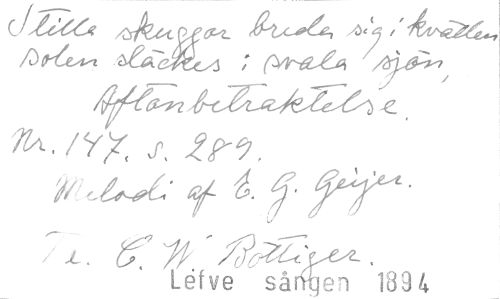 Stilla skuggor breda sig i kvällen
solen släckes i svala sjön,
Aftonbetraktelse.
Nr. 147. s. 289.
Melodi af E. G. Geijer.
Te. C. W Bottiger.
Lefve sången 1894